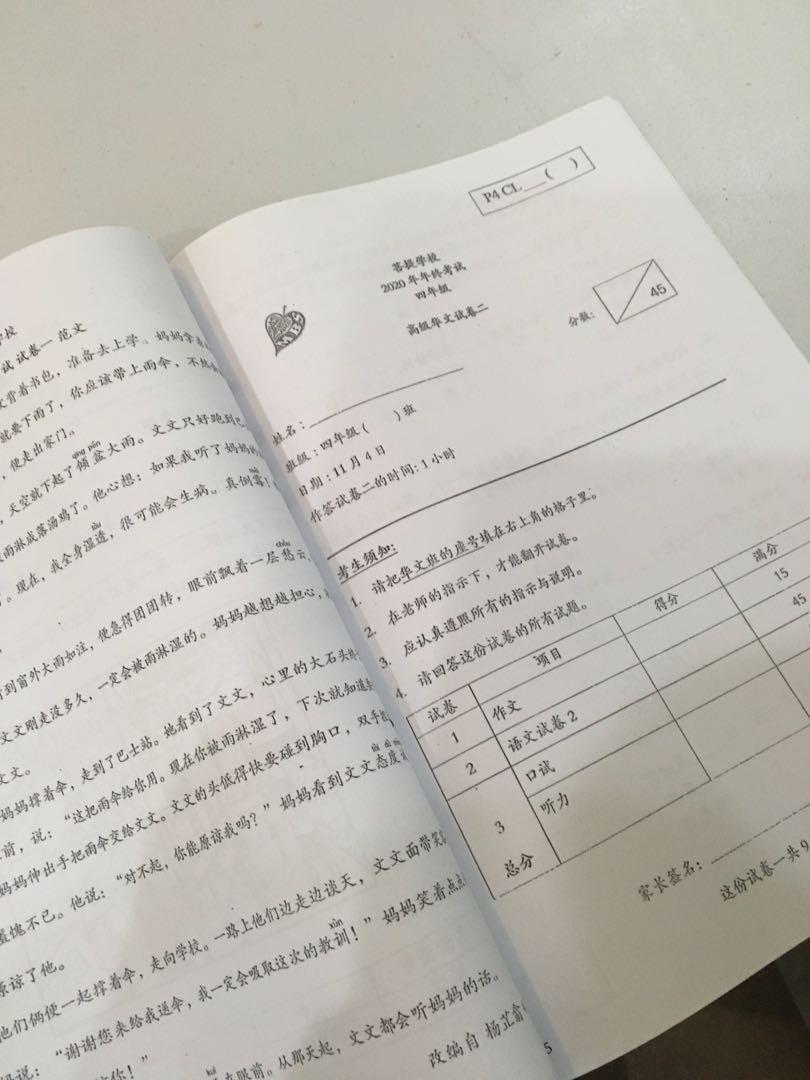 校
试试卷一 范文
文背着书包，准备去上学。妈妈拿着
就要下雨了，你应该带上雨伞，不然
，便走出家门。
qīng pén
，天空就下起了倾盆大雨。文文只好跑到巴
雨淋成落汤鸡了。他心想：如果我听了妈妈的
。现在，我全身湿透，很可能会生病。真倒霉！
看到窗外大雨如注，便急得团团转，眼前飘着一层愁云，
文文刚走没多久，一定会被雨淋湿的。妈妈越想越担心，
文文。
妈妈撑着伞，走到了巴士站。她看到了文文，心里的大石头
前，说：“这把雨伞给你用。现在你被雨淋湿了，下次就知道
妈妈伸出手把雨伞交给文文。文文的头低得快要碰到胸口，双手
羞愧不已。他说：“对不起，你能原谅我吗？”妈妈看到文文态度
原谅了他。
他们俩便一起撑着伞，走向学校。一路上他们边走边谈天，文文面带笑
xùn
“谢谢您来给我送伞，我一定会吸取这次的教训！”妈妈笑着点点
你！”
在眼前。从那天起，文文都会听妈妈的话。
改编自 杨芷
5
P4 CL ___ ( )
菩提学校
2020 年年终考试
四年级
高级华文试卷二
MBES
分数：
45
姓名：
班级：四年级( )班
日期：11 月 4 日
作答试卷二的时间：1 小时
考生须知：
1. 请把华文班的座号填在右上角的格子里。
2. 在老师的指示下，才能翻开试卷。
3. 应认真遵照所有的指示与说明。
4. 请回答这份试卷的所有试题。
试卷 项目 得分 满分
1 作文 15
2 语文试卷 2 45
3 口试
听力
总分
家长签名：
这份试卷一共 9